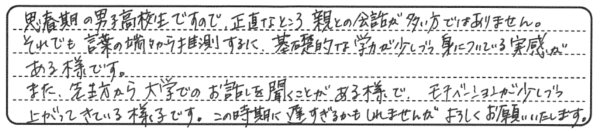 思春期の男子高校生ですので、正直なところ親との会話が多い方ではありません。
それでも言葉の端々から推測するに、基礎的な学力が少しづつ身についている実感が
ある様です。
また、先生方から大学でのお話しを聞くことがある様で、モチベーションが少しづつ
上がってきている様子です。この時期に遅すぎるかもしれませんがよろしくお願いいたします。